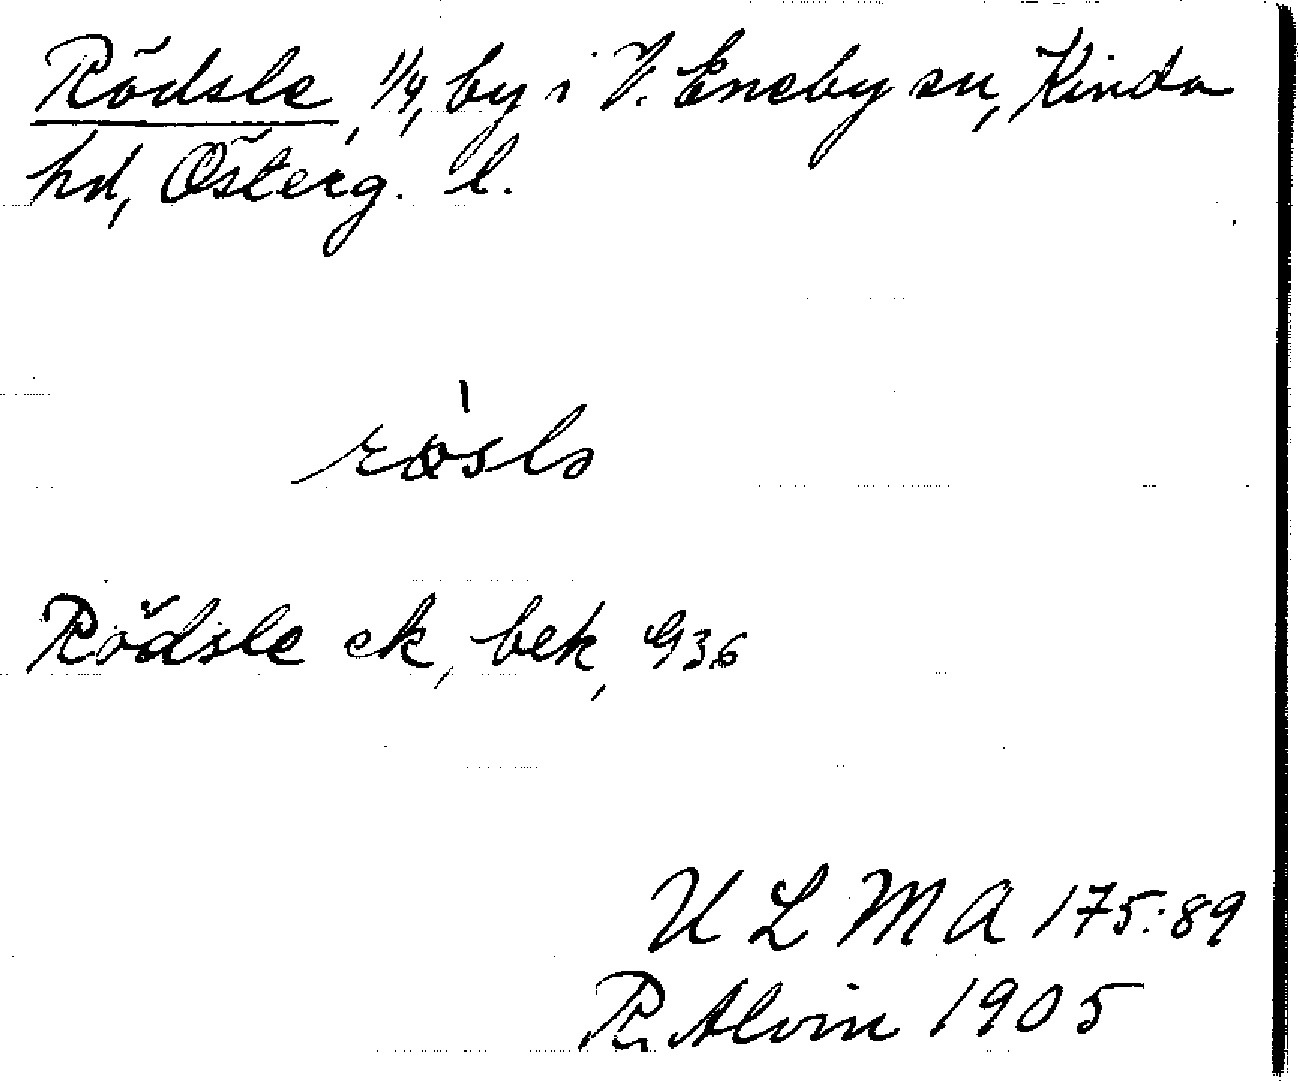 Rödsle, 1/4, by i V. Eneby sn, Kinda
hd, Österg. l.
Rödsle ek, bek, G 36
U L M A 175:89
R. Alvin 1905